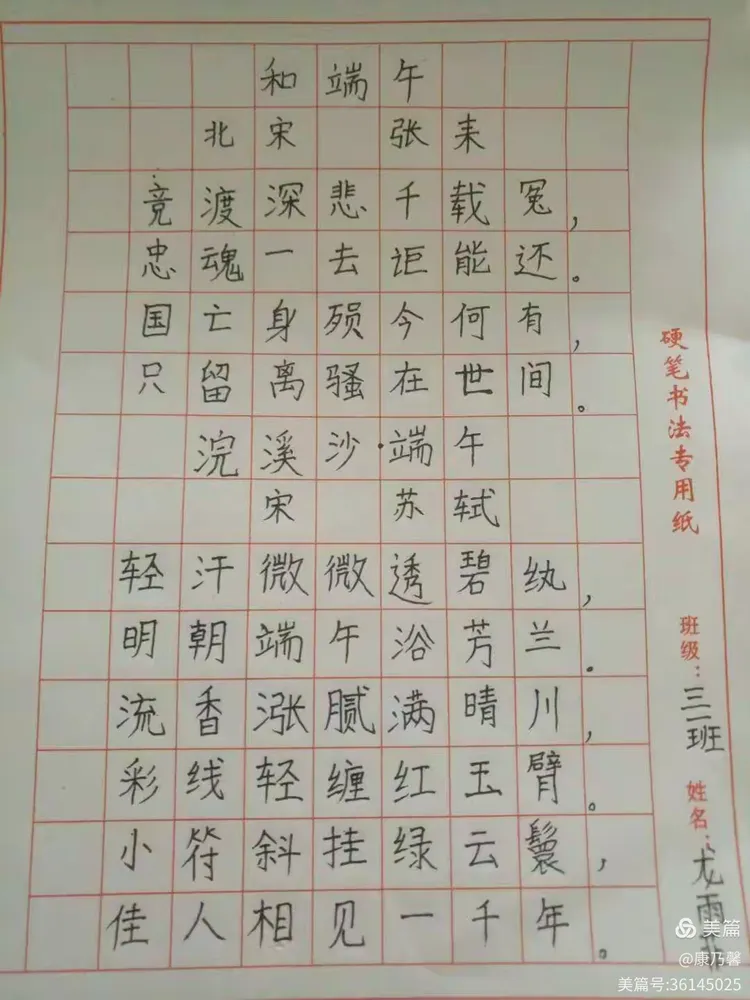 和端午
北宋 张耒
竞渡深悲千载冤,
忠魂一去讵能还。
国亡身殒今何有,
只留离骚在世间。
浣溪沙·端午
宋 苏轼
轻汗微微透碧纨,
明朝端午浴芳兰.
流香涨腻满晴川,
彩线轻缠红玉臂。
小符斜挂绿云鬟,
佳人相见一千年。
硬笔书法专用纸
班级:三一班
姓名:龙雨
美篇
@康乃馨
美篇号:36145025